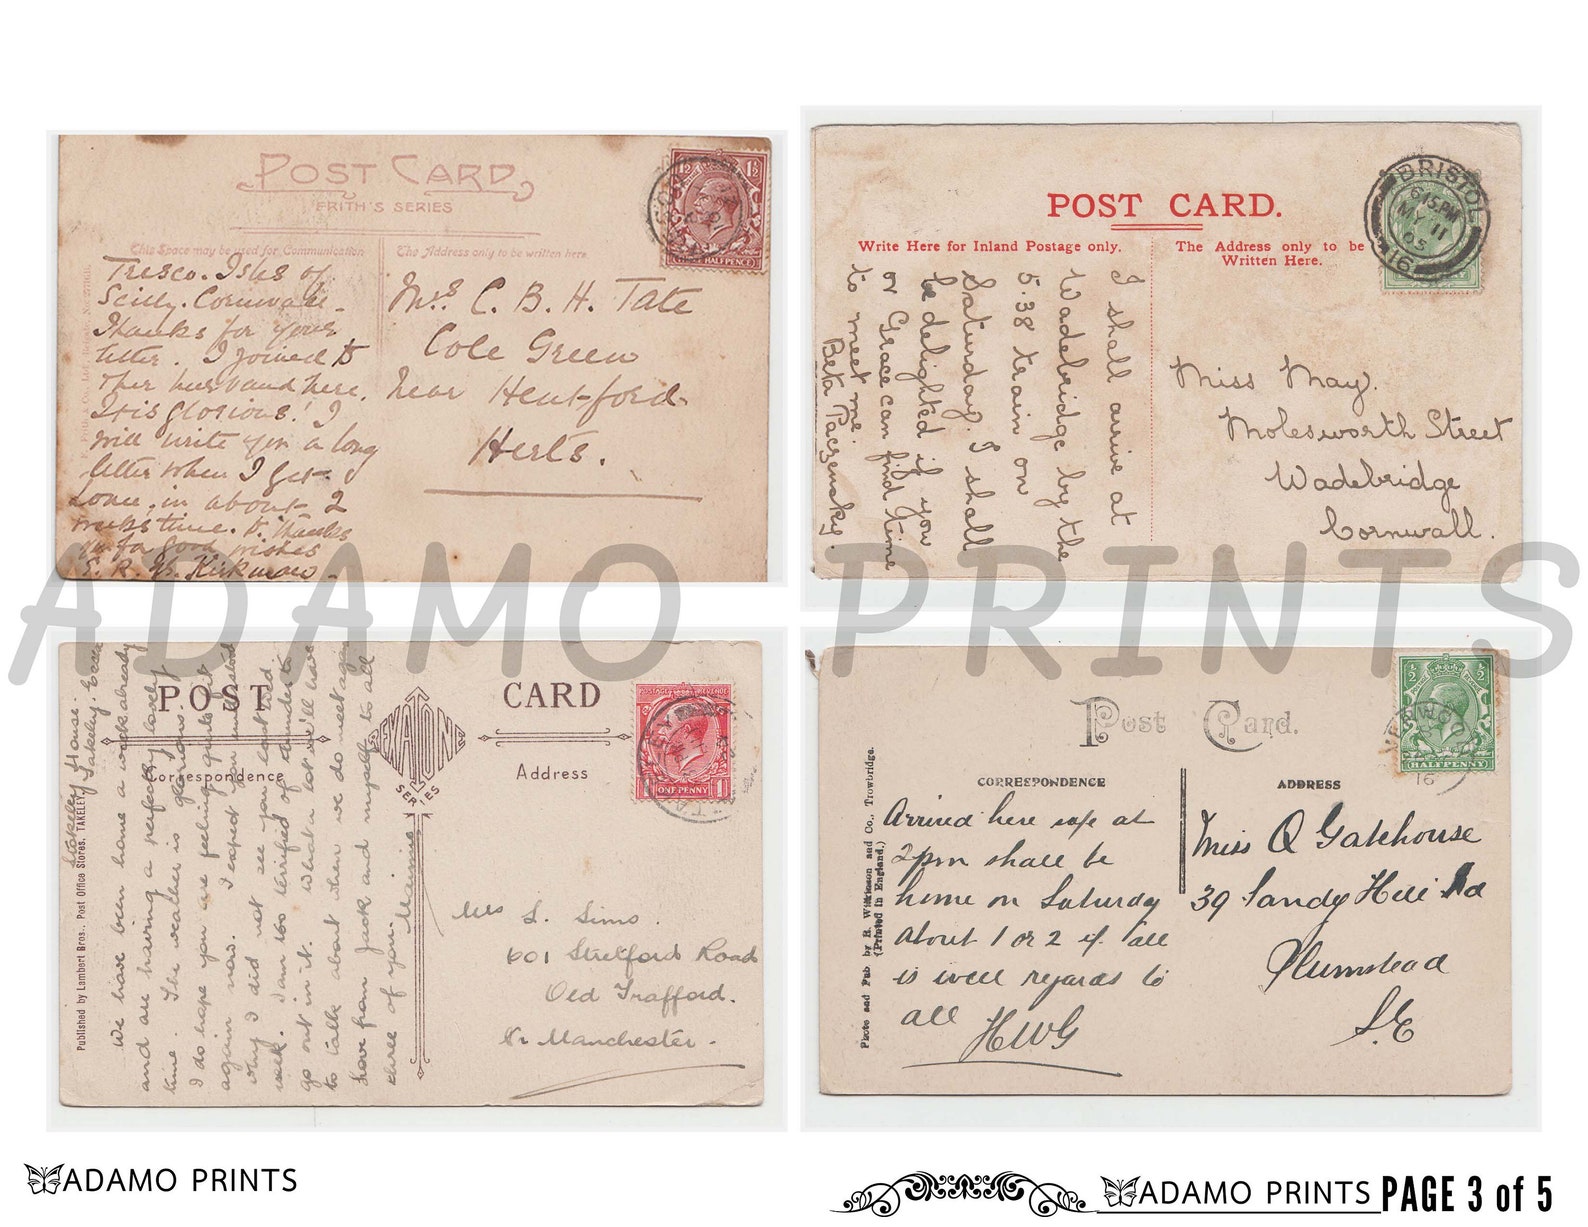 POST CARD
FRITH'S SERIES
This Space may be used for Communication
The Address only to be written here
1½ 1½
THREE HALFPENCE
Tresco. Isles of
Scilly. Cornwall.
Thanks for your
letter. I joined
her husband here.
It is glorious! I
will write you a long
letter when I get
home, in about 2
weeks time. Thanks
for good wishes
Mrs. C. B. H. Tate
Cole Green
near Hertford
Herts.
POST CARD.
Write Here for Inland Postage only.
The Address only to be
Written Here.
BRISTOL
6.15 PM
MY 11
05
16
I shall arrive at
Wadebridge by the
5.38 train on
Saturday. I shall
be delighted if you
or Grace can find time
to meet me.
Beta Paczensky.
Miss May.
Molesworth Street
Wadebridge
Cornwall.
POST CARD
Correspondence
Address
SERIES
POSTAGE REVENUE
ONE PENNY
Published by Lambert Bros., Post Office Stores, TAKELEY
Takeley House.
Takeley. Essex
We have been home a week already
and are having a perfectly lovely
time. The weather is glorious.
I do hope you are feeling quite fit
again now. I expect you understood
why I did not see you last Wed
week. I am too terrified of thunder to
go out in it. What a lot we'll have
to talk about when we do meet again
Love from Jack and myself to all
three of you.
Mainie
Mrs S. Sims.
601 Stretford Road
Old Trafford.
Nr Manchester.
Post Card.
CORRESPONDENCE
ADDRESS
½ ½
HALFPENNY
VERWOOD
16
Photo and Pub. by R. Wilkinson and Co., Trowbridge.
(Printed in England.)
Arrived here safe at
2pm shall be
home on Saturday
about 1 or 2 if all
is well regards to
all HWG
Miss Q Gatehouse
39 Sandy Hill Rd
Plumstead
S.E
ADAMO PRINTS
ADAMO PRINTS
ADAMO PRINTS PAGE 3 of 5